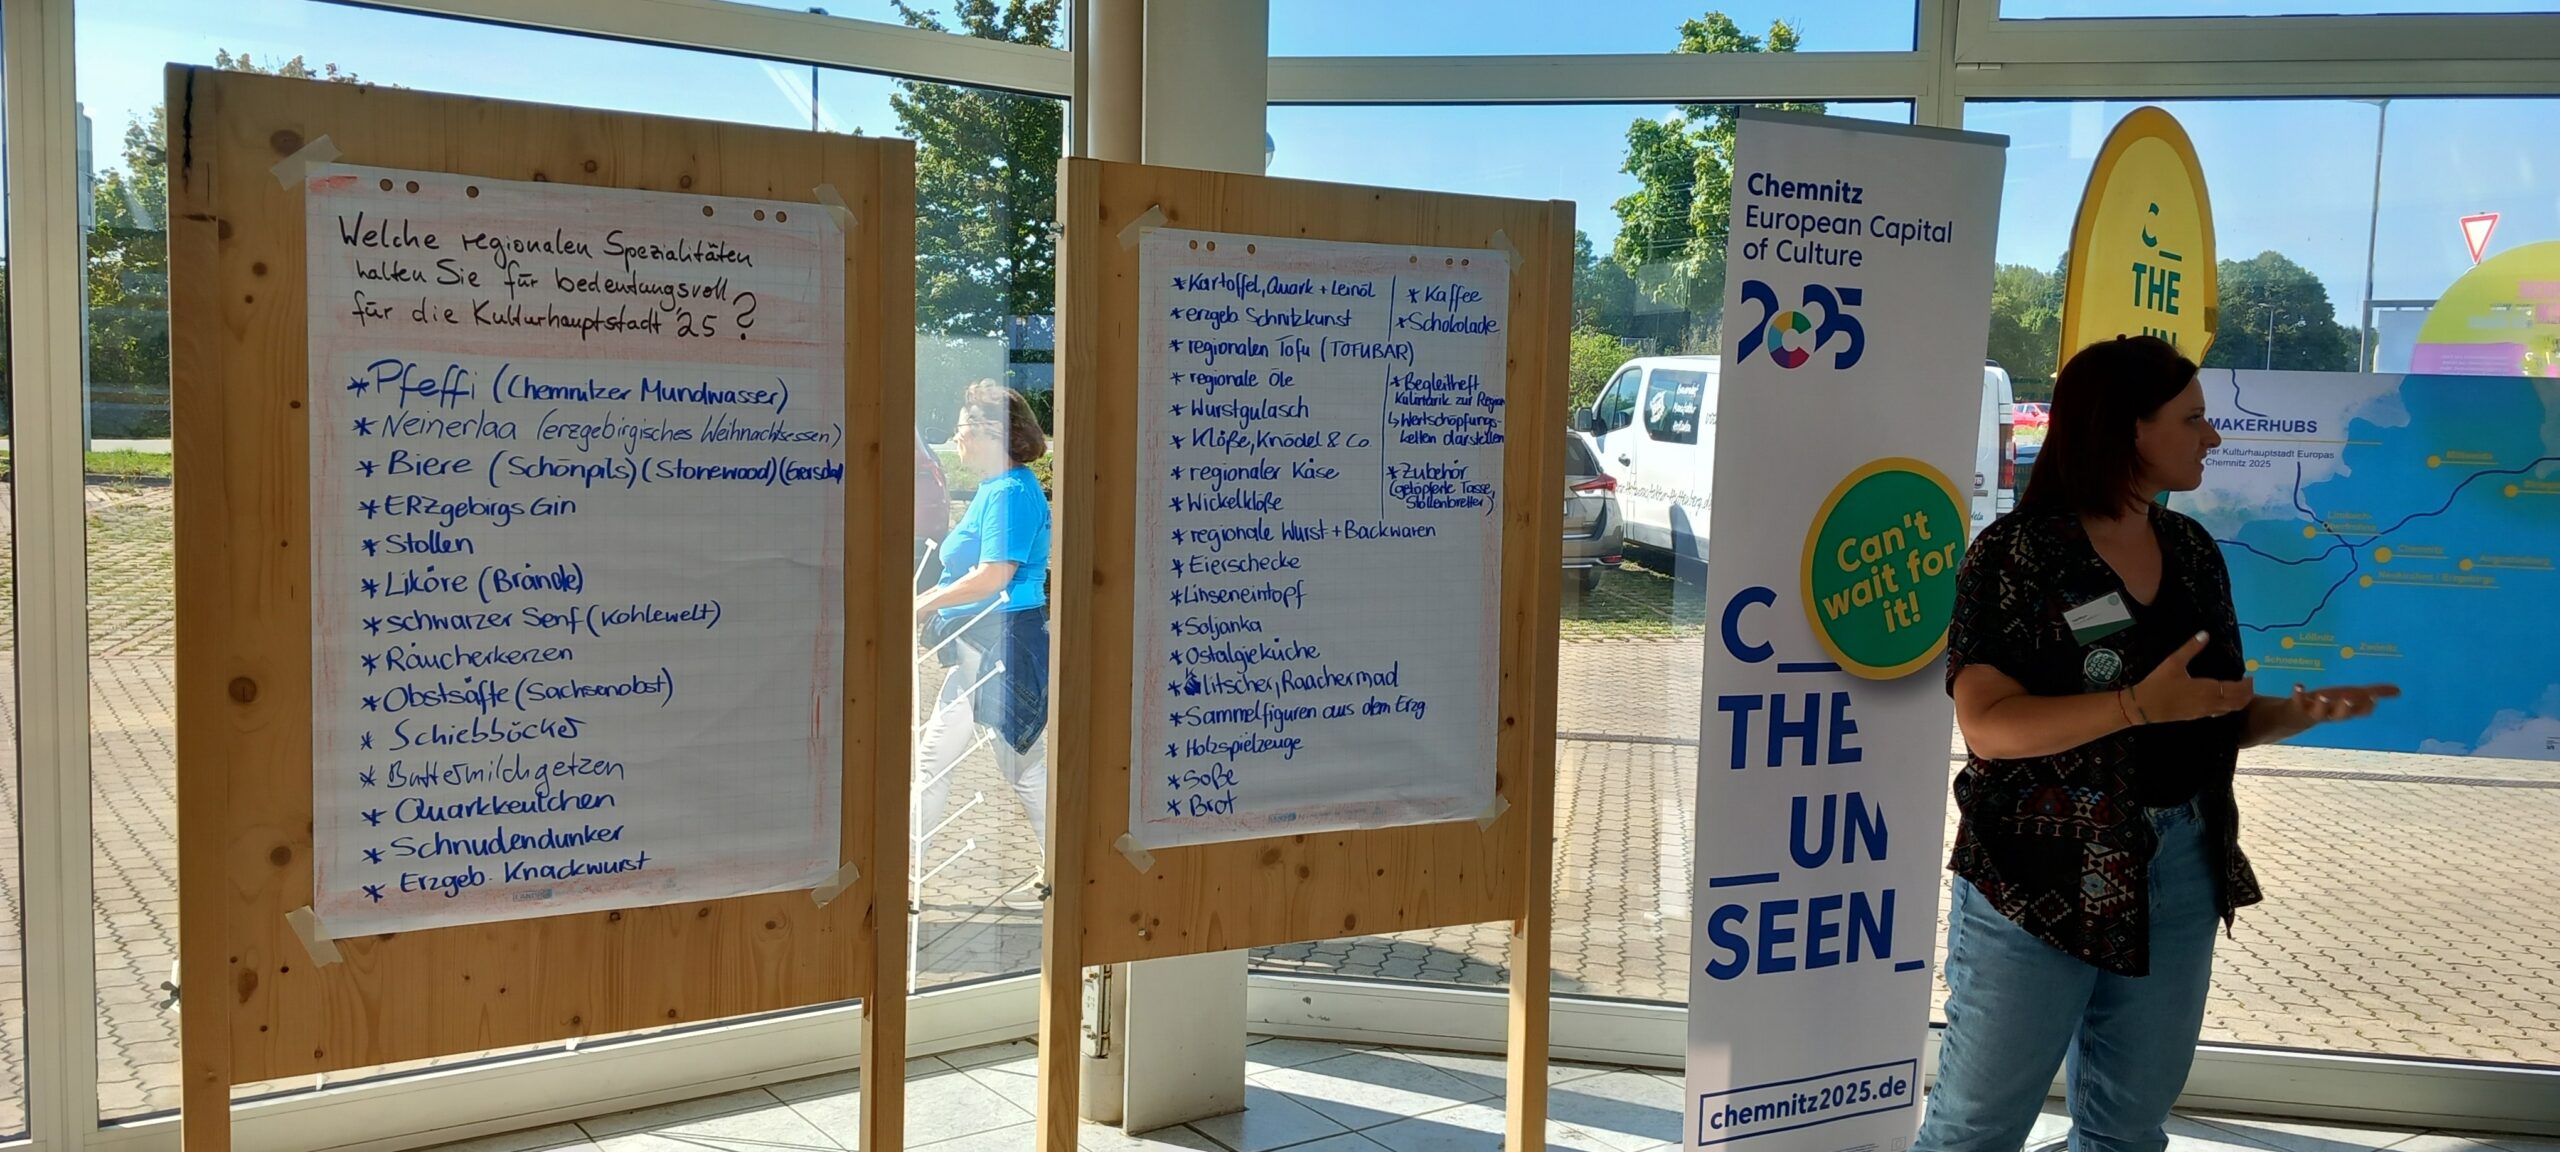 Welche regionalen Spezialitäten
halten Sie für bedeutungsvoll
für die Kulturhauptstadt '25?
* Pfeffi (Chemnitzer Mundwasser)
* Neinerlaa (erzgebirgisches Weihnachtsessen)
* Biere (Schönpils) (Stonewood)
* ERZgebirgs Gin
* Stollen
* Liköre (Brände)
* schwarzer Senf (Kohlewelt)
* Räucherkerzen
* Obstsäfte (Sachsenobst)
* Schiebböcker
* Buttermilchgetzen
* Quarkkeulchen
* Schnudendunker
* Erzgeb. Knackwurst
* Kartoffel, Quark + Leinöl
* erzgeb. Schnitzkunst
* regionalen Tofu (TOFUBAR)
* regionale Öle
* Wurstgulasch
* Klöße, Knödel & Co.
* regionaler Käse
* Wickelklöße
* regionale Wurst + Backwaren
* Eierschecke
* Linseneintopf
* Soljanka
* Ostalgieküche
* Klitscher, Raachermad
* Sammelfiguren aus dem Erzg
* Holzspielzeuge
* Soße
* Brot
* Kaffee
* Schokolade
* Begleitheft
Kulinarik zur Region
↳ Wertschöpfungs-
ketten darstellen
* Zubehör
(getöpferte Tasse,
Stollenbretter)
Chemnitz
European Capital
of Culture
2025
Can't
wait for
it!
C_
THE
_UN
SEEN_
chemnitz2025.de
C_
THE
UN
MAKERHUBS
der Kulturhauptstadt Europas
Chemnitz 2025
Mittweida
Limbach-
Oberfrohna
Chemnitz
Augustusburg
Neukirchen / Erzgebirge
Lößnitz
Zwönitz
Schneeberg